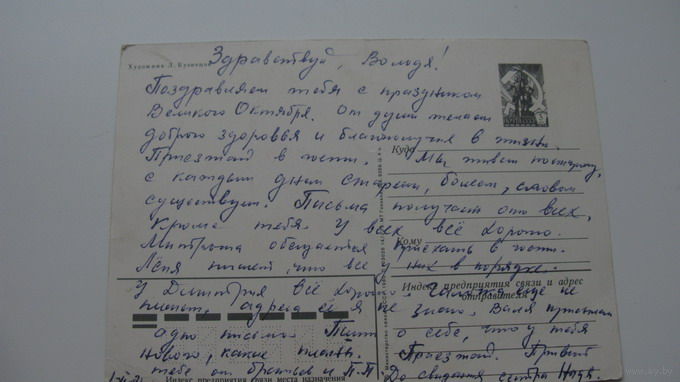 Художник Л. Кузнецов
Здравствуй, Володя!
Поздравляем тебя с праздником
Великого Октября. От души желаем
доброго здоровья и благополучия в жизни.
Приезжай в гости. Мы живём по-старому,
Куда
с каждым днем стареем, болеем, словом
существуем. Письма получаем от всех,
Кроме тебя. У всех всё хорошо.
Кому
Митроша обещается приехать в гости.
Лёня пишет, что все у них в порядке.
Индекс предприятия связи и адрес
отправителя
У Дмитрия всё хорошо.
пишет, адреса её я не знаю, Валя
одно письмо. Пиши о себе, что у тебя
нового, какие планы. Приезжай. Привет
тебе от братьев и П.П. До свидания сестра Надя.
Индекс предприятия связи места назначения
www.ay.by